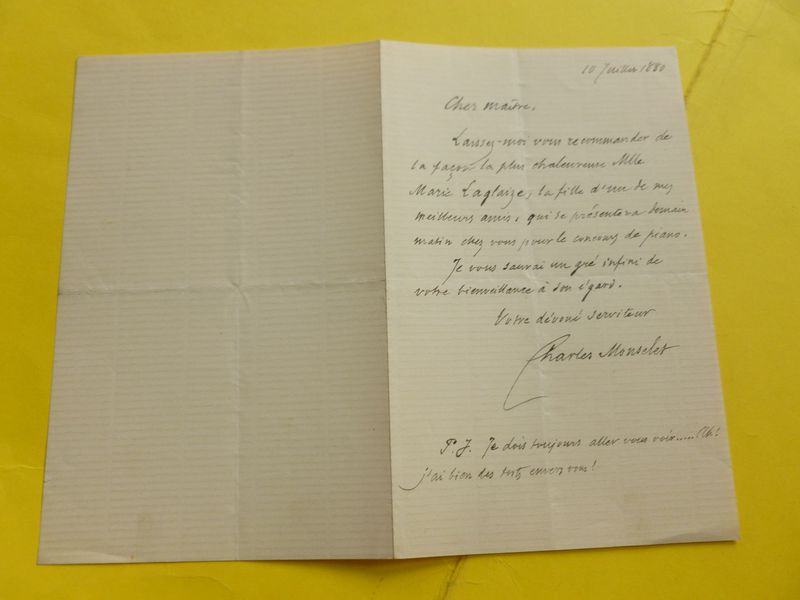 10 Juillet 1880
Cher maître,
Laissez-moi vous recommander de
la façon la plus chaleureuse Mlle
Marie Laglaize, la fille d'un de mes
meilleurs amis, qui se présentera demain
matin chez vous pour le concours de piano.
Je vous saurai un gré infini de
votre bienveillance à son égard.
Votre dévoué serviteur
Charles Monselet
P. S. Je dois toujours aller vous voir..... Ah!
j'ai bien des torts envers vous!